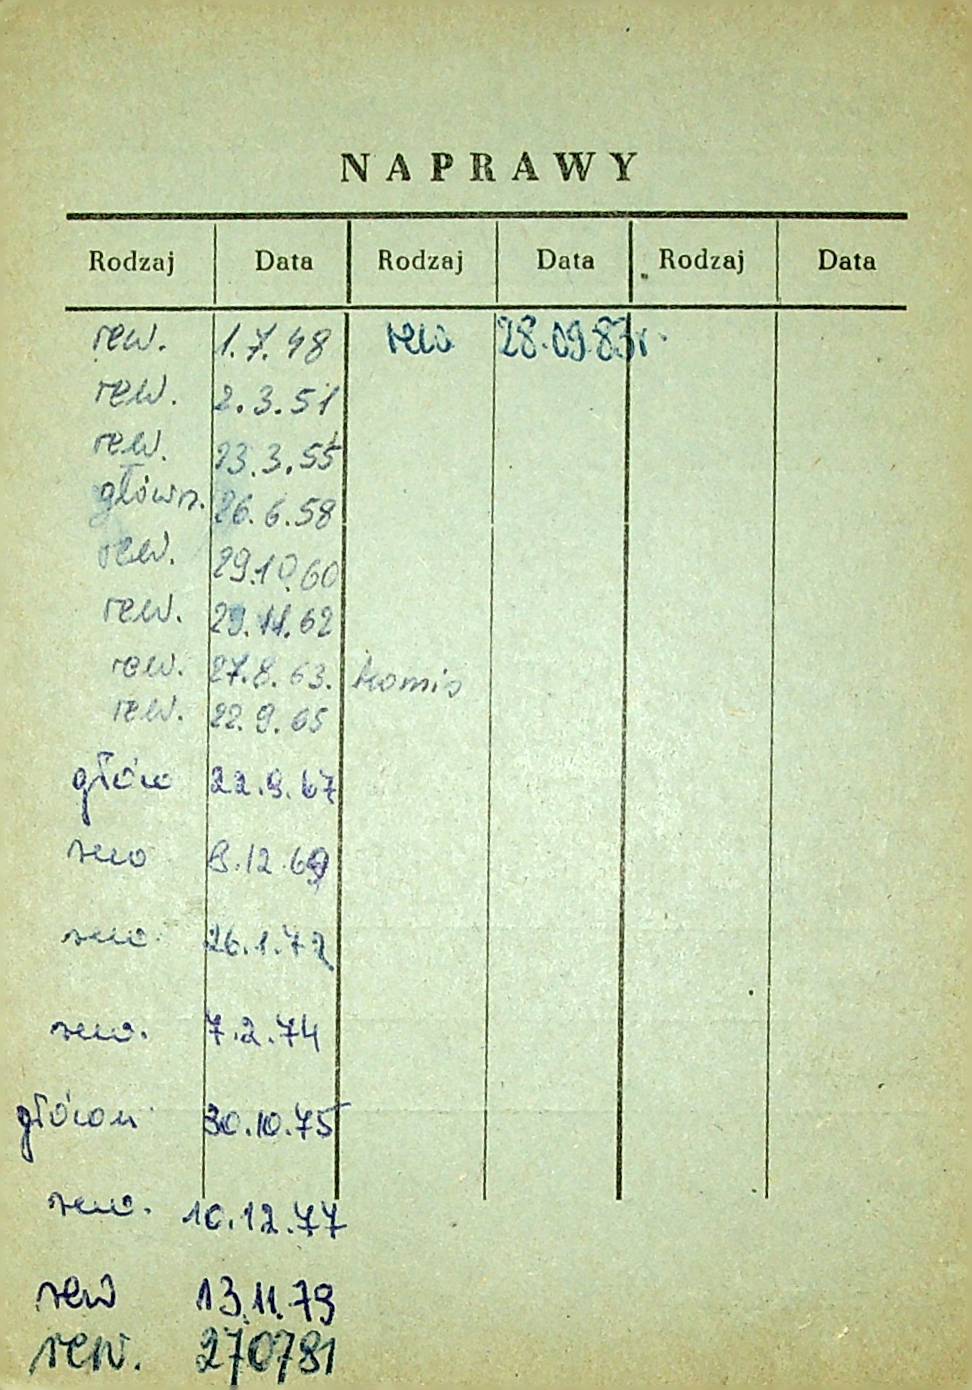 NAPRAWY
Rodzaj Data Rodzaj Data Rodzaj Data
rew. 1.7.48 rew 28.09.83r.
rew. 2.3.51
rew. 23.3.55
główn. 26.6.58
rew. 29.10.60
rew. 29.11.62
rew. 27.8.63. komis
rew. 22.9.65
główn 22.9.67
rew 8.12.69
rew. 26.1.72
rew. 7.2.74
główn 30.10.75
rew. 10.12.77
rew 13.11.79
rew. 270781